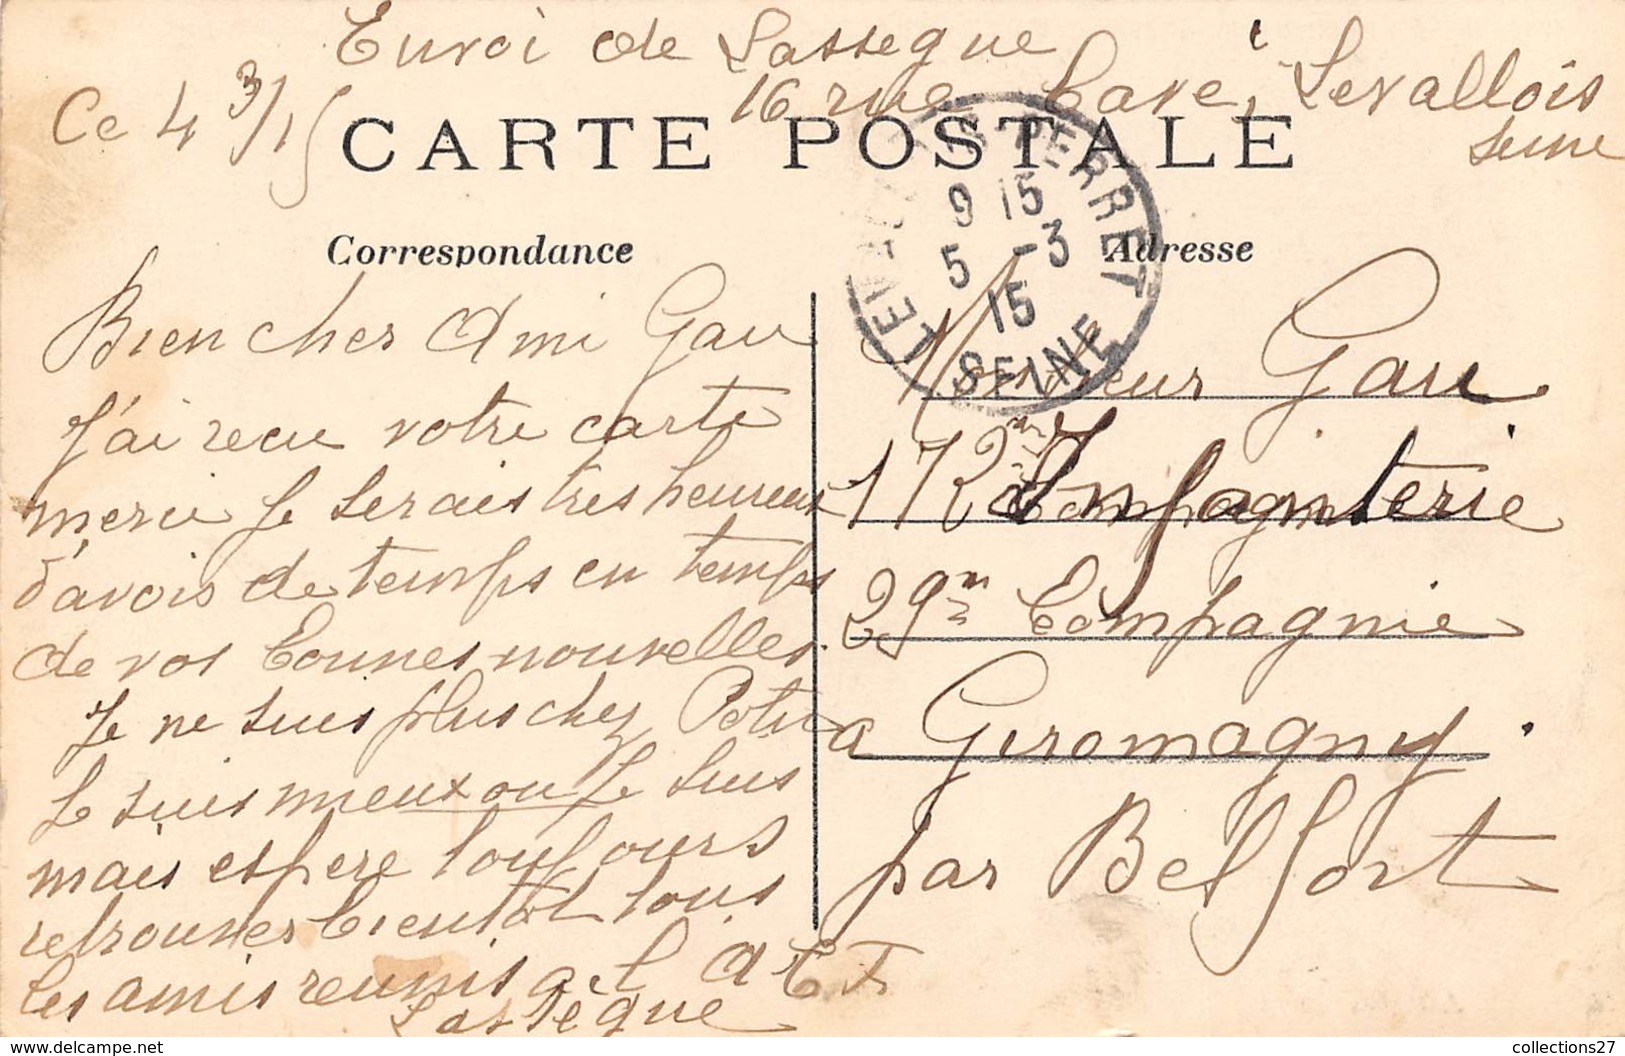 Envoi de Lassegue
16 rue Cavé, Levallois
Seine
Ce 4 3/15
CARTE POSTALE
LEVALLOIS-PERRET
9 15
5 -3
15
SEINE
Correspondance
Adresse
Bien cher Ami Gau
J'ai recu votre carte
merci Je serais tres heureux
d'avois de temps en temps
de vos bonnes nouvelles.
Je ne suis plus chez
Je suis mieux ou Je suis
mais espere toujours
retrouver bientôt tous
les amis reunis a l A C F
Lassègue
Monsieur Gau
172me Infanterie
29me Compagnie
a Giromagny.
par Belfort
collections27